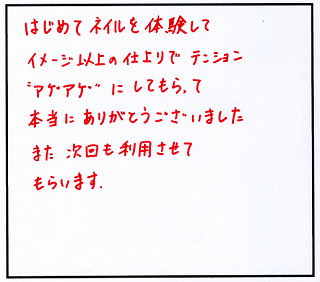 はじめて ネイルを 体験して
イメージ以上の仕上りで テンション
"アゲアゲ" に してもらって
本当に ありがとうございました
また 次回も利用させて
もらいます.